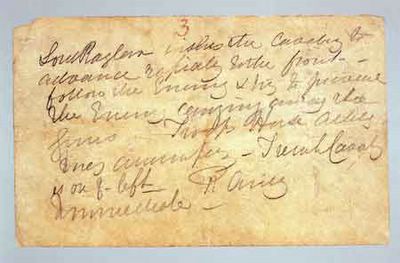 3
Lord Raglan wishes the Cavalry to
advance rapidly to the front –
follow the Enemy & try to prevent
the Enemy carrying away the
guns – Troop Horse Artily
may accompany – French Cavaly
is on yr left
Immediate R Airey